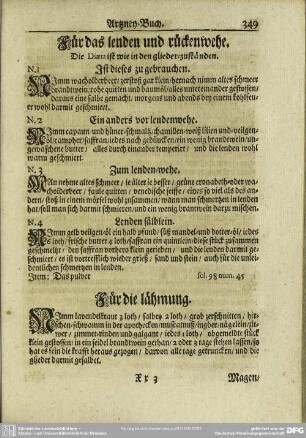 Artzney-Buch. 349
Für das lenden und rückenwehe.
Die Diæta ist wie in den glieder-zuständen.
N.1 Ist dieses zu gebrauchen.
Nimm wacholderbeer, zerstoß gar klein, hernach nimm altes schmeer
brandtwein, rohe quitten und baumöl, alles untereinander gestossen,
daraus eine salbe gemacht, morgens und abends bey einem kohlfeu-
er wohl darmit geschmiert.
N.2 Ein anders vor lendenwehe.
Nimm capaun- und hüner-schmaltz, chamillen- weiß lilien- und veilgen-
öl, campher, saffran, iedes nach gedüncken, ein wenig brandtwein, un-
gewaschene butter, alles durch einander temperirt, und die lenden wohl
warm geschmirt.
N.3 Zum lenden-wehe.
Man nehme altes schmeer, ie älter ie besser, grüne
wacholderbeer, faule quitten, venedische seiffe, eines so viel als des an-
dern, stoß es in einem mörsel wohl zusammen, wann man schmertzen in lenden
hat, soll man sich darmit schmieren, und ein wenig brantwein darzu mischen.
N.4 Lenden sälblein.
Nimm gelb veilgen-öl ein halb pfund, süß mandel- und dotter-öl, iedes
loth, frische butter 4 loth, saffran ein quintlein, diese stück zusammen
geschmeltzt, den saffran vorhero klein gerieben, und die lenden darmit ge-
schmiert, es ist vortrefflich wieder grieß, sand und stein, auch für die unleid-
entlichen schmertzen in lenden.
Item: Das pulver fol. 98 num. 45
Für die lähmung.
Nimm lavendelkraut 3 loth, salbey 2 loth, grob zerschnitten, hir-
schen-schwamm in der apothecken, muscatnuß, ingber, nägelein, in-
wer, zimmet-rinden und galgant, iedes 1 loth, obgemeldte stück
klein gestossen, in ein seidel brandtwein gethan, 2 oder 3 tage stehen lassen, so
hat es sein die krafft heraus gezogen, darvon alle tage getruncken, und die
glieder darmit gesalbet.
Xx 3 Magen,